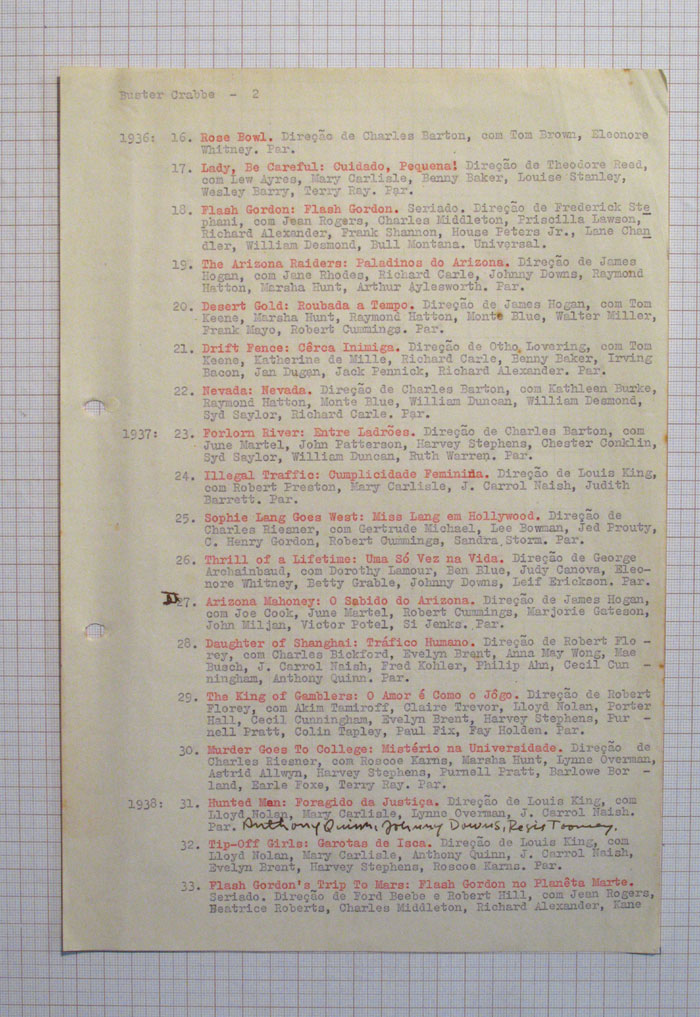 Buster Crabbe - 2
1936: 16. Rose Bowl. Direção de Charles Barton, com Tom Brown, Eleonore
Whitney. Par.
17. Lady, Be Careful: Cuidado, Pequena! Direção de Theodore Reed,
com Lew Ayres, Mary Carlisle, Benny Baker, Louise Stanley,
Wesley Barry, Terry Ray. Par.
18. Flash Gordon: Flash Gordon. Seriado. Direção de Frederick Ste
phani, com Jean Rogers, Charles Middleton, Priscilla Lawson,
Richard Alexander, Frank Shannon, House Peters Jr., Lane Chan
dler, William Desmond, Bull Montana. Universal.
19. The Arizona Raiders: Paladinos do Arizona. Direção de James
Hogan, com Jane Rhodes, Richard Carle, Johnny Downs, Raymond
Hatton, Marsha Hunt, Arthur Aylesworth. Par.
20. Desert Gold: Roubada a Tempo. Direção de James Hogan, com Tom
Keene, Marsha Hunt, Raymond Hatton, Monte Blue, Walter Miller,
Frank Mayo, Robert Cummings. Par.
21. Drift Fence: Cêrca Inimiga. Direção de Otho Lovering, com Tom
Keene, Katherine de Mille, Richard Carle, Benny Baker, Irving
Bacon, Jan Dugan, Jack Pennick, Richard Alexander. Par.
22. Nevada: Nevada. Direção de Charles Barton, com Kathleen Burke,
Raymond Hatton, Monte Blue, William Duncan, William Desmond,
Syd Saylor, Richard Carle. Par.
1937: 23. Forlorn River: Entre Ladrões. Direção de Charles Barton, com
June Martel, John Patterson, Harvey Stephens, Chester Conklin,
Syd Saylor, William Duncan, Ruth Warren. Par.
24. Illegal Traffic: Cumplicidade Feminina. Direção de Louis King,
com Robert Preston, Mary Carlisle, J. Carrol Naish, Judith
Barrett. Par.
25. Sophie Lang Goes West: Miss Lang em Hollywood. Direção de
Charles Riesner, com Gertrude Michael, Lee Bowman, Jed Prouty,
C. Henry Gordon, Robert Cummings, Sandra Storm. Par.
26. Thrill of a Lifetime: Uma Só Vez na Vida. Direção de George
Archainbaud, com Dorothy Lamour, Ben Blue, Judy Canova, Eleo-
nore Whitney, Betty Grable, Johnny Downs, Leif Erickson. Par.
27. Arizona Mahoney: O Sabido do Arizona. Direção de James Hogan,
com Joe Cook, June Martel, Robert Cummings, Marjorie Gateson,
John Miljan, Victor Potel, Si Jenks. Par.
28. Daughter of Shanghai: Tráfico Humano. Direção de Robert Flo -
rey, com Charles Bickford, Evelyn Brent, Anna May Wong, Mae
Busch, J. Carrol Naish, Fred Kohler, Philip Ahn, Cecil Cun -
ningham, Anthony Quinn. Par.
29. The King of Gamblers: O Amor é Como o Jôgo. Direção de Robert
Florey, com Akim Tamiroff, Claire Trevor, Lloyd Nolan, Porter
Hall, Cecil Cunningham, Evelyn Brent, Harvey Stephens, Pur -
nell Pratt, Colin Tapley, Paul Fix, Fay Holden. Par.
30. Murder Goes To College: Mistério na Universidade. Direção de
Charles Riesner, com Roscoe Karns, Marsha Hunt, Lynne Overman,
Astrid Allwyn, Harvey Stephens, Purnell Pratt, Barlowe Bor -
land, Earle Foxe, Terry Ray. Par.
1938: 31. Hunted Man: Foragido da Justiça. Direção de Louis King, com
Lloyd Nolan, Mary Carlisle, Lynne Overman, J. Carrol Naish.
Par. Anthony Quinn, Johnny Downs, Regis Toomey.
32. Tip-Off Girls: Garotas de Isca. Direção de Louis King, com
Lloyd Nolan, Mary Carlisle, Anthony Quinn, J. Carrol Naish,
Evelyn Brent, Harvey Stephens, Roscoe Karns. Par.
33. Flash Gordon's Trip To Mars: Flash Gordon no Planêta Marte.
Seriado. Direção de Ford Beebe e Robert Hill, com Jean Rogers,
Beatrice Roberts, Charles Middleton, Richard Alexander, Kane